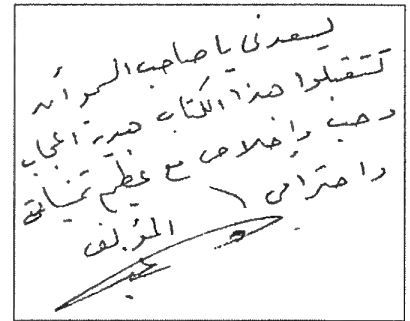 يسعدني يا صاحب السمو أن
تتقبلوا هذا الكتاب هدية اعجاب
وحب وإخلاص مع عظيم تمنياتي
واحترامي \
المؤلف